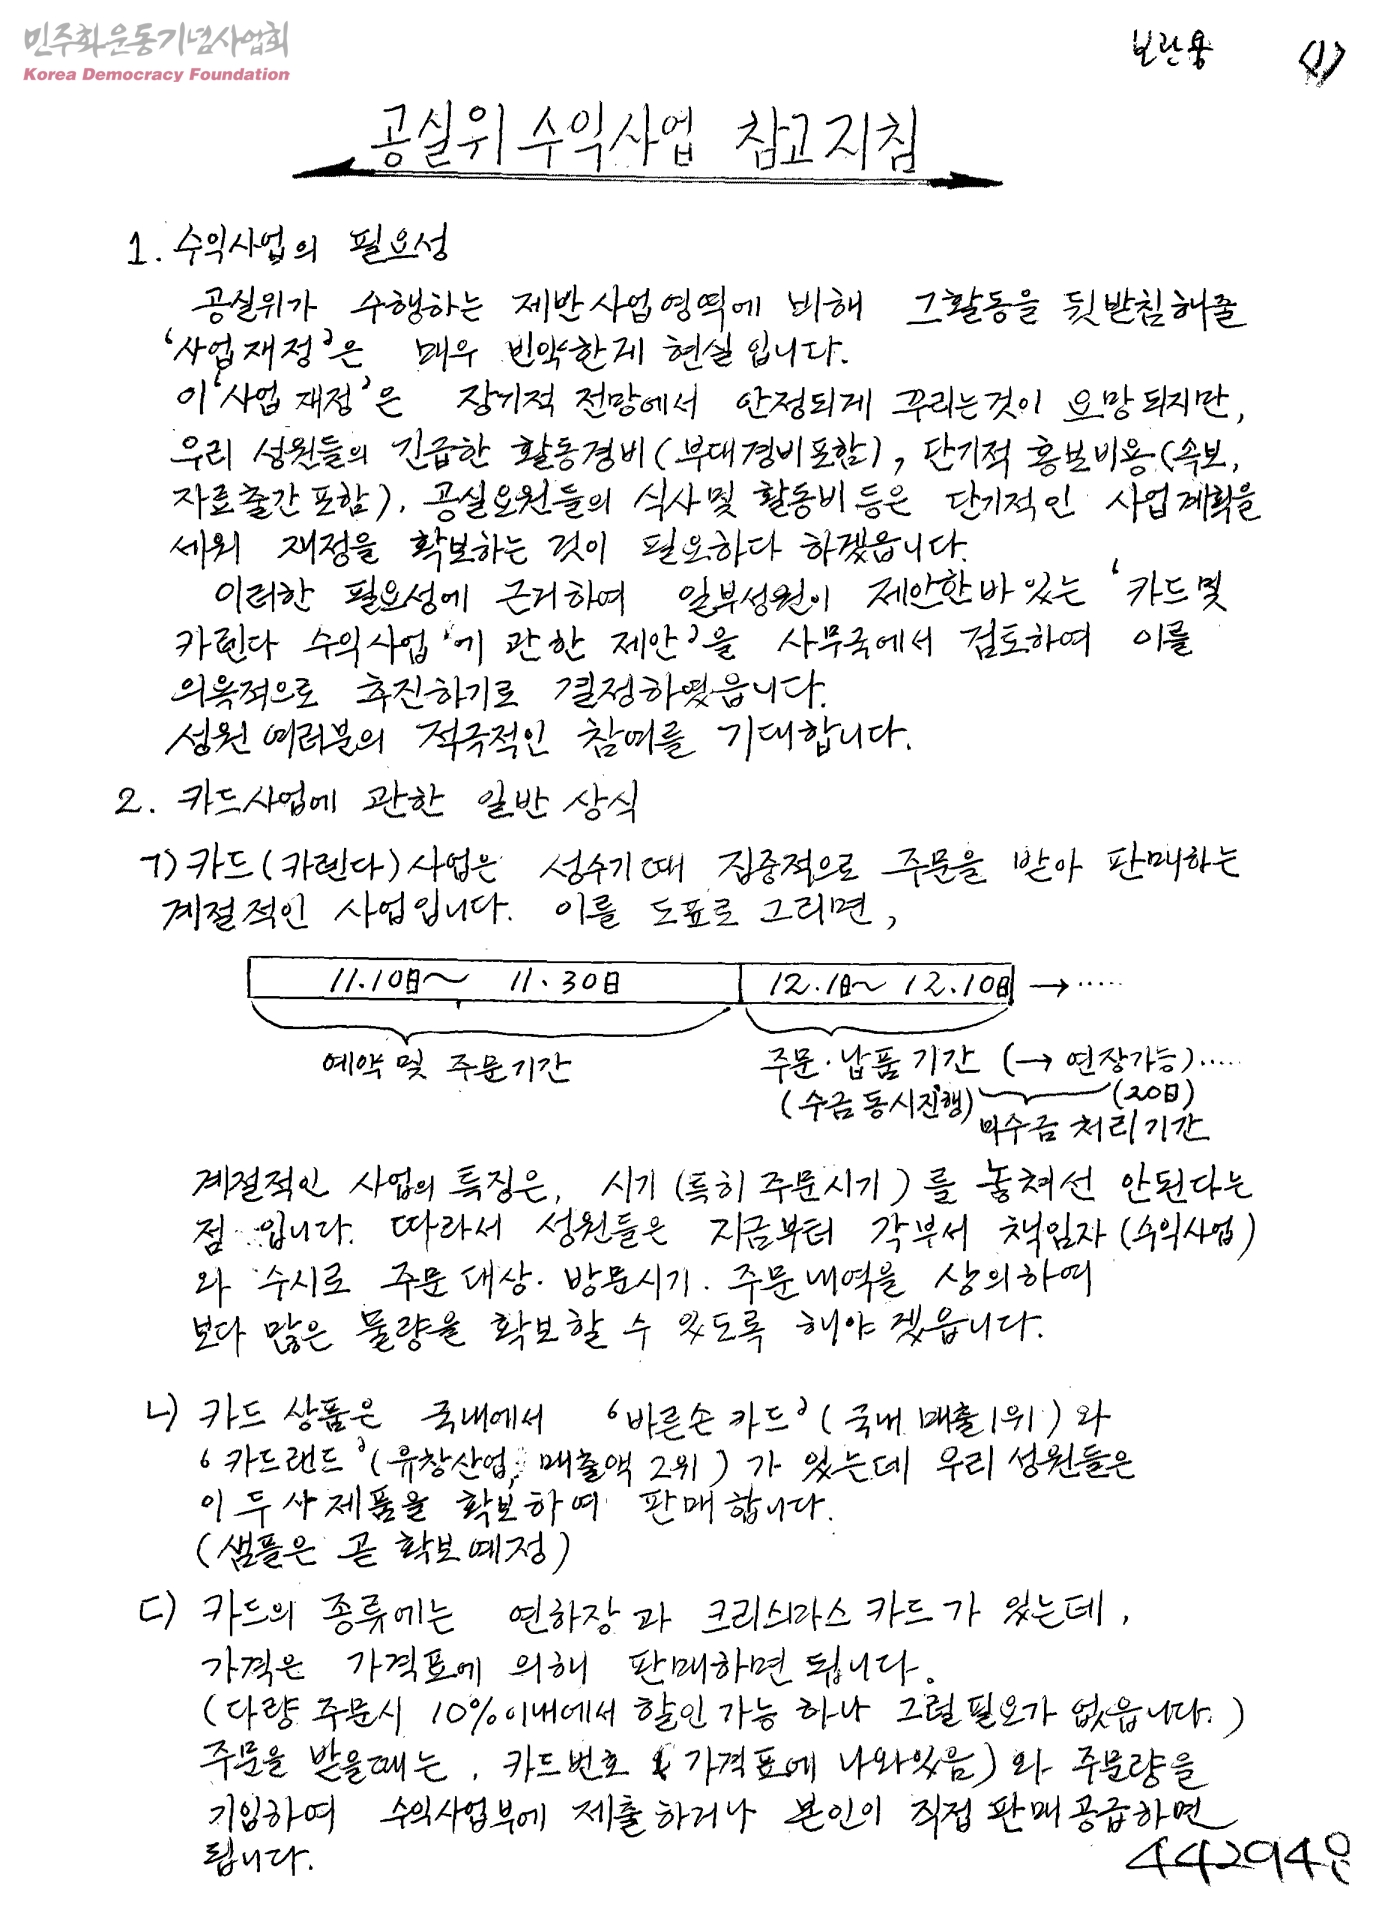 민주화운동기념사업회
Korea Democracy Foundation
보관용 〈1〉
공실위 수익사업 참고지침
1. 수익사업의 필요성
공실위가 수행하는 제반사업영역에 비해 그활동을 뒷받침해줄
'사업재정'은 매우 빈약한게 현실입니다.
이 '사업재정'은 장기적 전망에서 안정되게 꾸리는것이 요망되지만,
우리 성원들의 긴급한 활동경비(부대경비포함), 단기적 홍보비용(속보,
자료출간포함), 공실요원들의 식사및 활동비등은 단기적인 사업계획을
세워 재정을 확보하는 것이 필요하다 하겠읍니다.
이러한 필요성에 근거하여 일부성원이 제안한바있는 '카드및
카렌다 수익사업'에 관한 제안'을 사무국에서 검토하여 이를
의욕적으로 추진하기로 결정하였읍니다.
성원여러분의 적극적인 참여를 기대합니다.
2. 카드사업에 관한 일반상식
ㄱ) 카드(카렌다)사업은 성수기때 집중적으로 주문을 받아 판매하는
계절적인 사업입니다. 이를 도표로 그리면,
11.10日~ 11.30日 12.1日~ 12.10日 → ·····
예약및 주문기간 주문·납품기간 (→ 연장가능)·····
(수금동시진행) (20日)
미수금 처리기간
계절적인 사업의 특징은, 시기(특히 주문시기)를 놓쳐선 안된다는
점 입니다. 따라서 성원들은 지금부터 각부서 책임자(수익사업)
와 수시로 주문대상·방문시기·주문내역을 상의하여
보다 많은 물량을 확보할 수 있도록 해야 겠읍니다.
ㄴ) 카드상품은 국내에서 '바른손카드'(국내매출1위)와
'카드랜드'(유창산업, 매출액 2위)가 있는데 우리성원들은
이 두 사 제품을 확보하여 판매합니다.
(샘플은 곧 확보예정)
ㄷ) 카드의 종류에는 연하장과 크리스마스카드가 있는데,
가격은 가격표에 의해 판매하면 됩니다.
(다량주문시 10%이내에서 할인가능 하나 그럴필요가 없읍니다.)
주문을 받을때는, 카드번호 (가격표에 나와있음)와 주문량을
기입하여 수익사업부에 제출하거나 본인이 직접 판매공급하면
됩니다.
442940